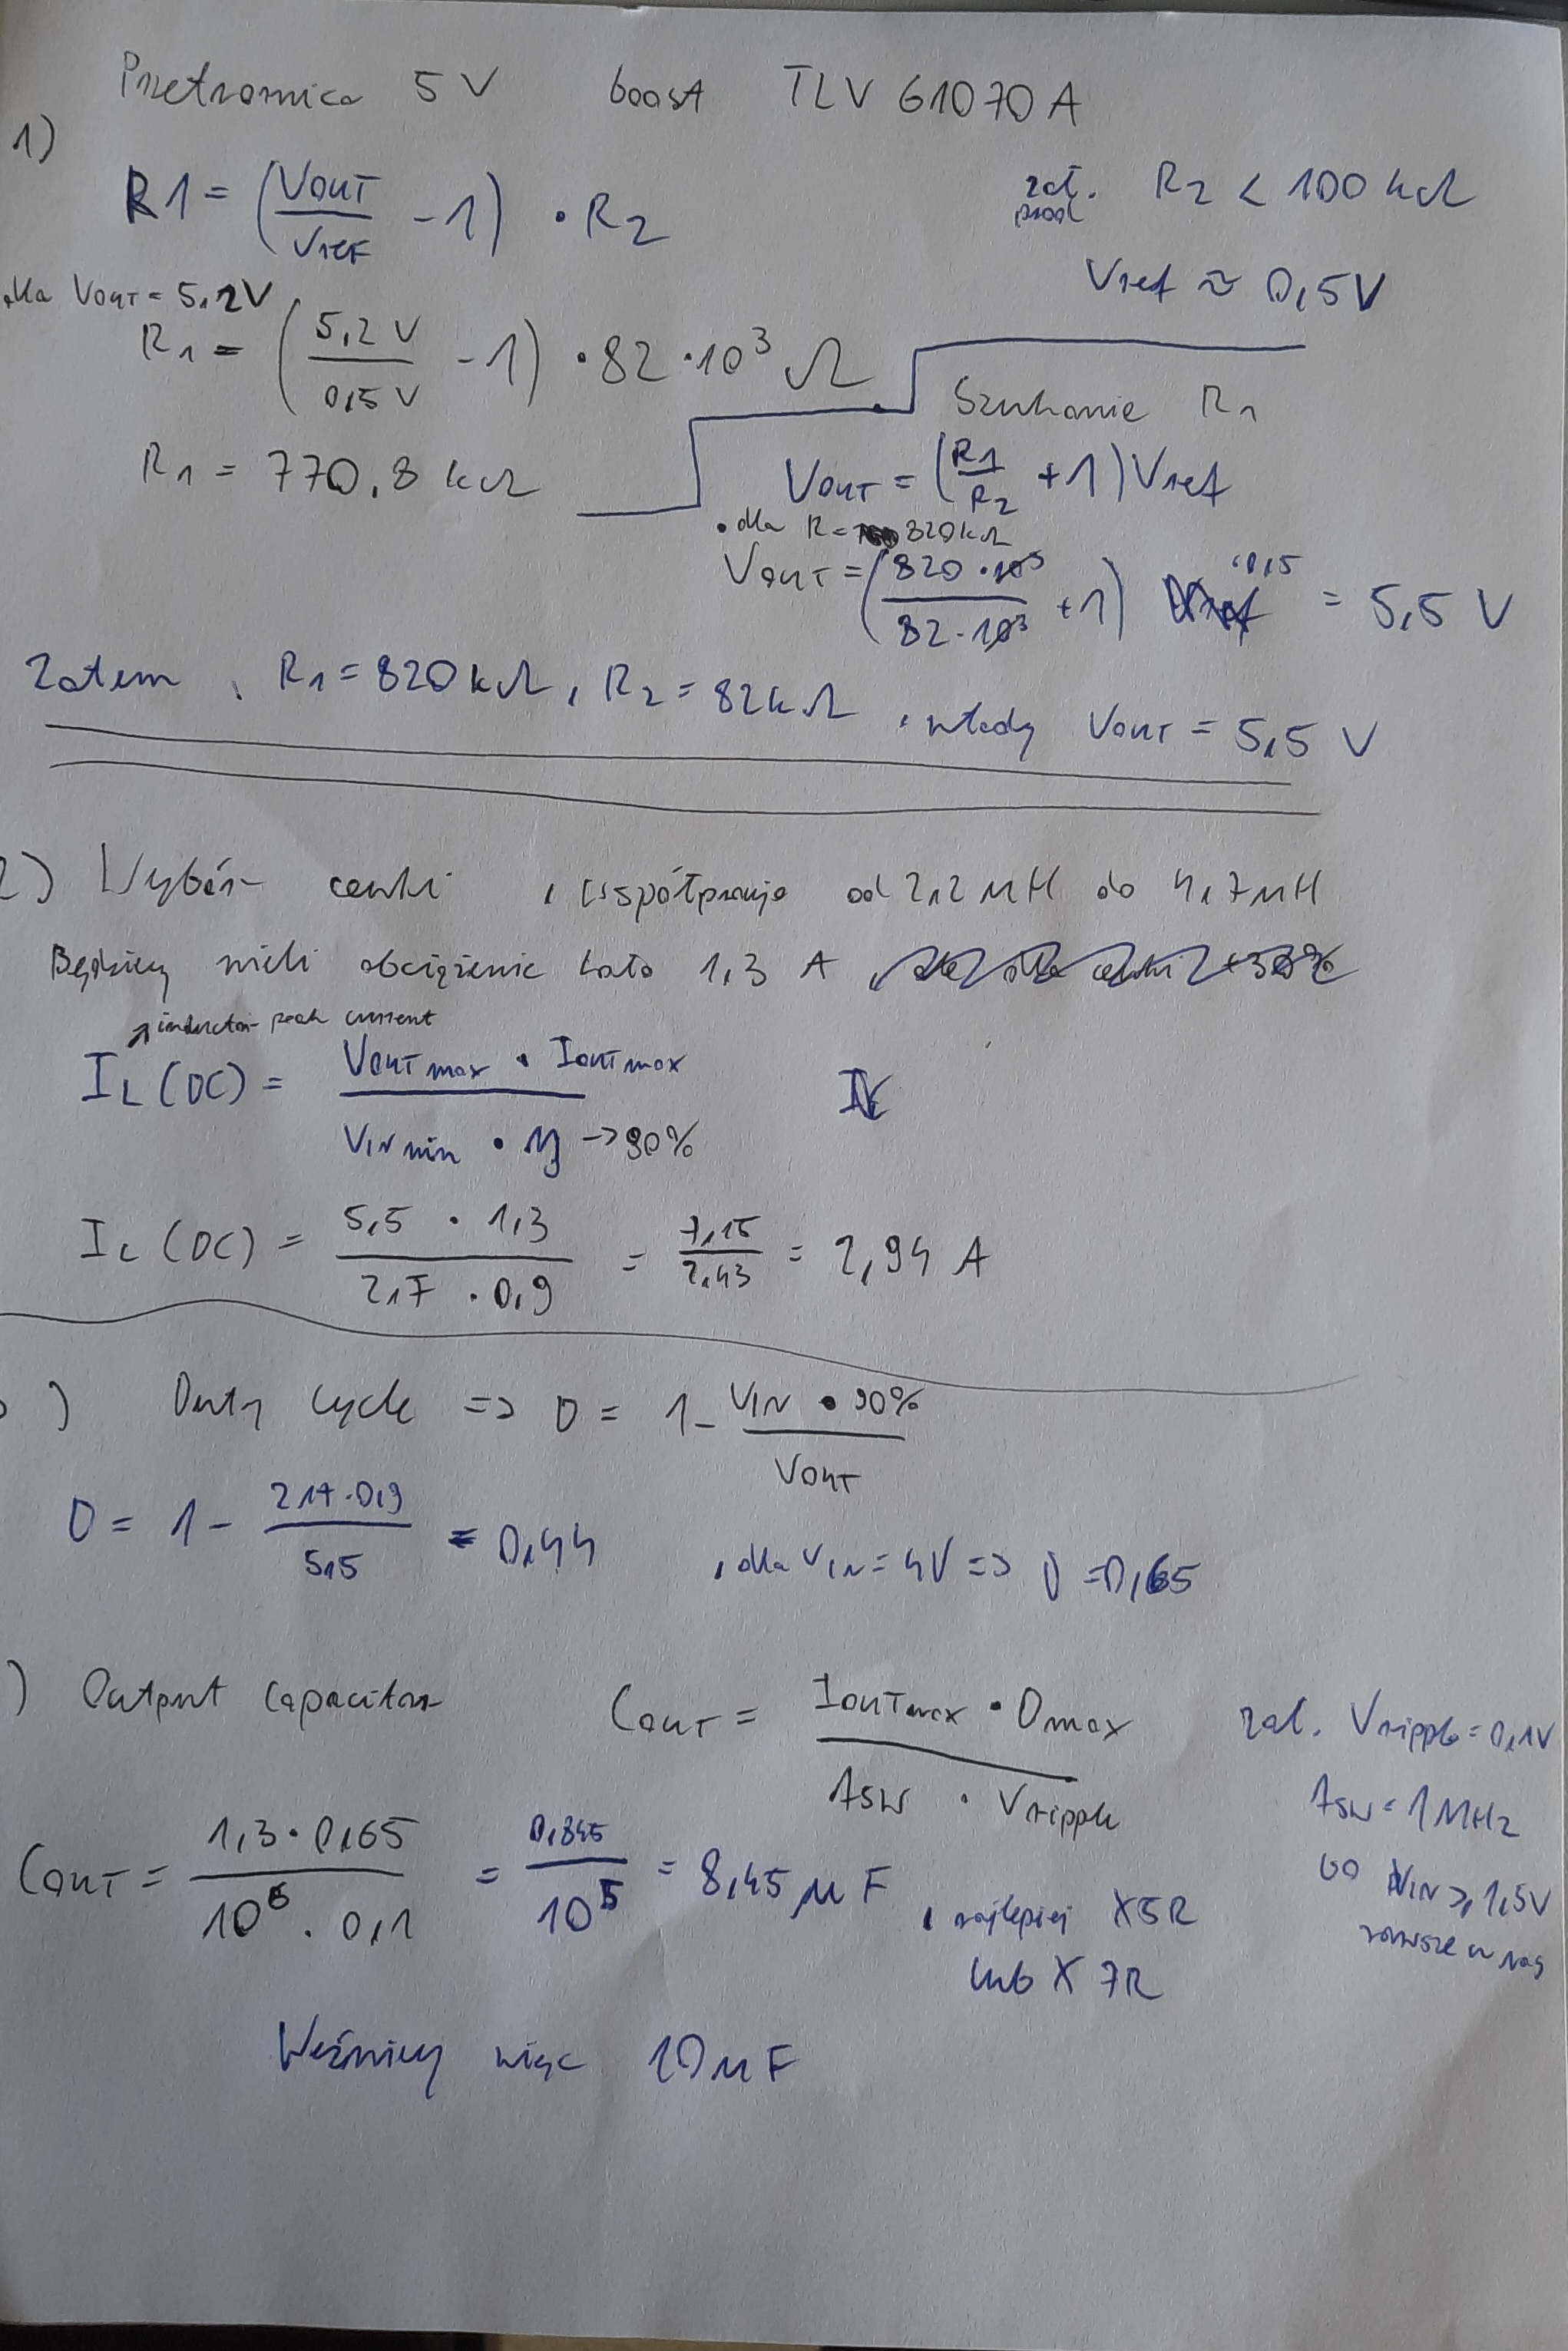 Przetwornica 5 V boost TLV 61070 A
1)
R1 = (VOUT / Vref - 1) • R2
zał. prod. R2 < 100 kΩ
Vref ≈ 0,5V
dla VOUT = 5,2V
R1 = (5,2 V / 0,5 V - 1) • 82 • 10³ Ω
R1 = 770,8 kΩ
Szukanie R1
VOUT = (R1 / R2 + 1) Vref
• dla R = 820kΩ
VOUT = (820 • 10³ / 82 • 10³ + 1) • 0,5 = 5,5 V
Zatem, R1 = 820kΩ, R2 = 82kΩ, wtedy VOUT = 5,5 V
2) Wybór cewki, współpracuje od 2,2 uH do 4,7uH
Będziemy mieli obciążenie koło 1,3 A
↗ inductor peak current
IL (DC) = VOUT max • IOUT max / VIN min • η → 90%
IL (DC) = 5,5 • 1,3 / 2,7 • 0,9 = 7,15 / 2,43 = 2,94 A
) Duty cycle => D = 1 - VIN • 90% / VOUT
D = 1 - 2,7 • 0,9 / 5,5 = 0,44 , dla VIN = 4V => D = 0,65
) Output capacitor COUT = IOUTmax • Dmax / fsw • Vripple
zał. Vripple = 0,1V
fsw = 1 MHz
bo VIN ≥ 1,5V
zawsze u nas
COUT = 1,3 • 0,65 / 10⁶ • 0,1 = 0,845 / 10⁵ = 8,45 µF , najlepiej X5R
lub X7R
Weźmiemy więc 10uF